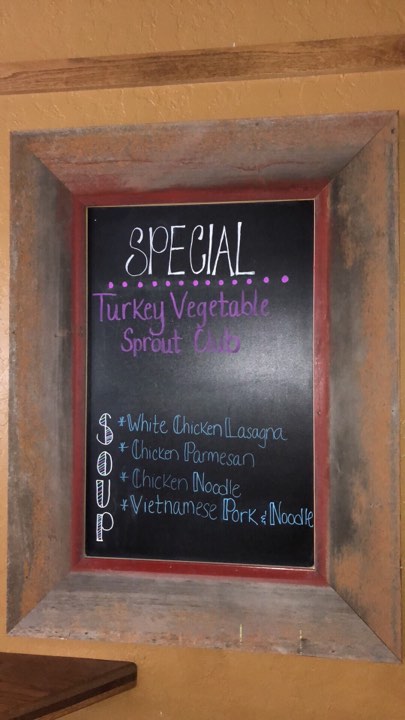 SPECIAL
Turkey Vegetable
Sprout Club
SOUP
*White Chicken Lasagna
*Chicken Parmesan
*Chicken Noodle
*Vietnamese Pork & Noodle